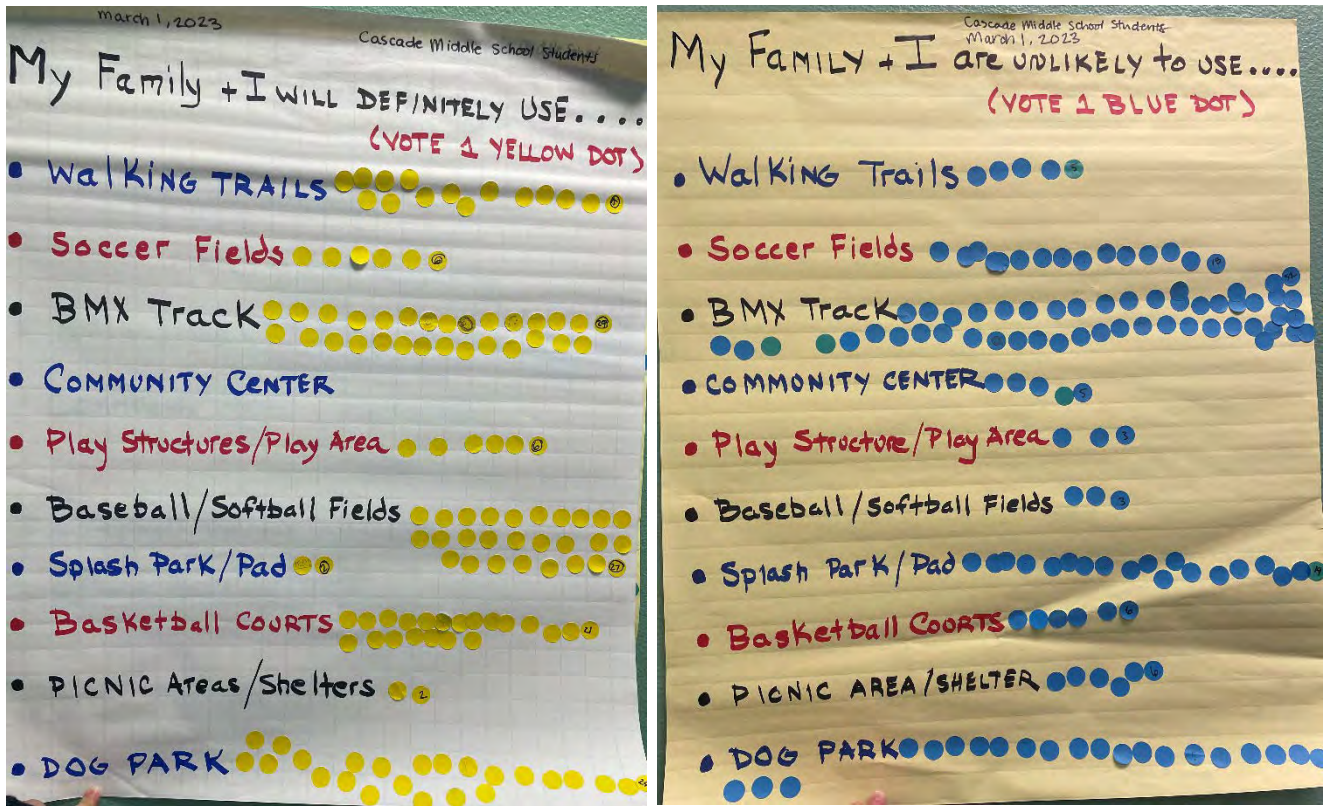 march 1, 2023
Cascade Middle School Students
My Family + I WILL DEFINITELY USE....
(VOTE 1 YELLOW DOT)
• WalKING TRAILS
• Soccer Fields
6
• BMX Track
• COMMUNITY CENTER
• Play Structures/Play Area
6
• Baseball/Softball Fields
27
• Splash Park/Pad
2
• Basketball COURTS
• PICNIC Areas/Shelters
2
• DOG PARK
Cascade Middle School Students
March 1, 2023
My FAMILY + I are UNLIKELY TO USE....
(VOTE 1 BLUE DOT)
• WalKING Trails
5
• Soccer Fields
• BMX Track
• COMMONITY CENTER
5
• Play Structure/Play Area
3
• Baseball/Softball Fields
3
• Splash Park/Pad
• Basketball COURTS
6
• PICNIC AREA/SHELTER
6
• DOG PARK